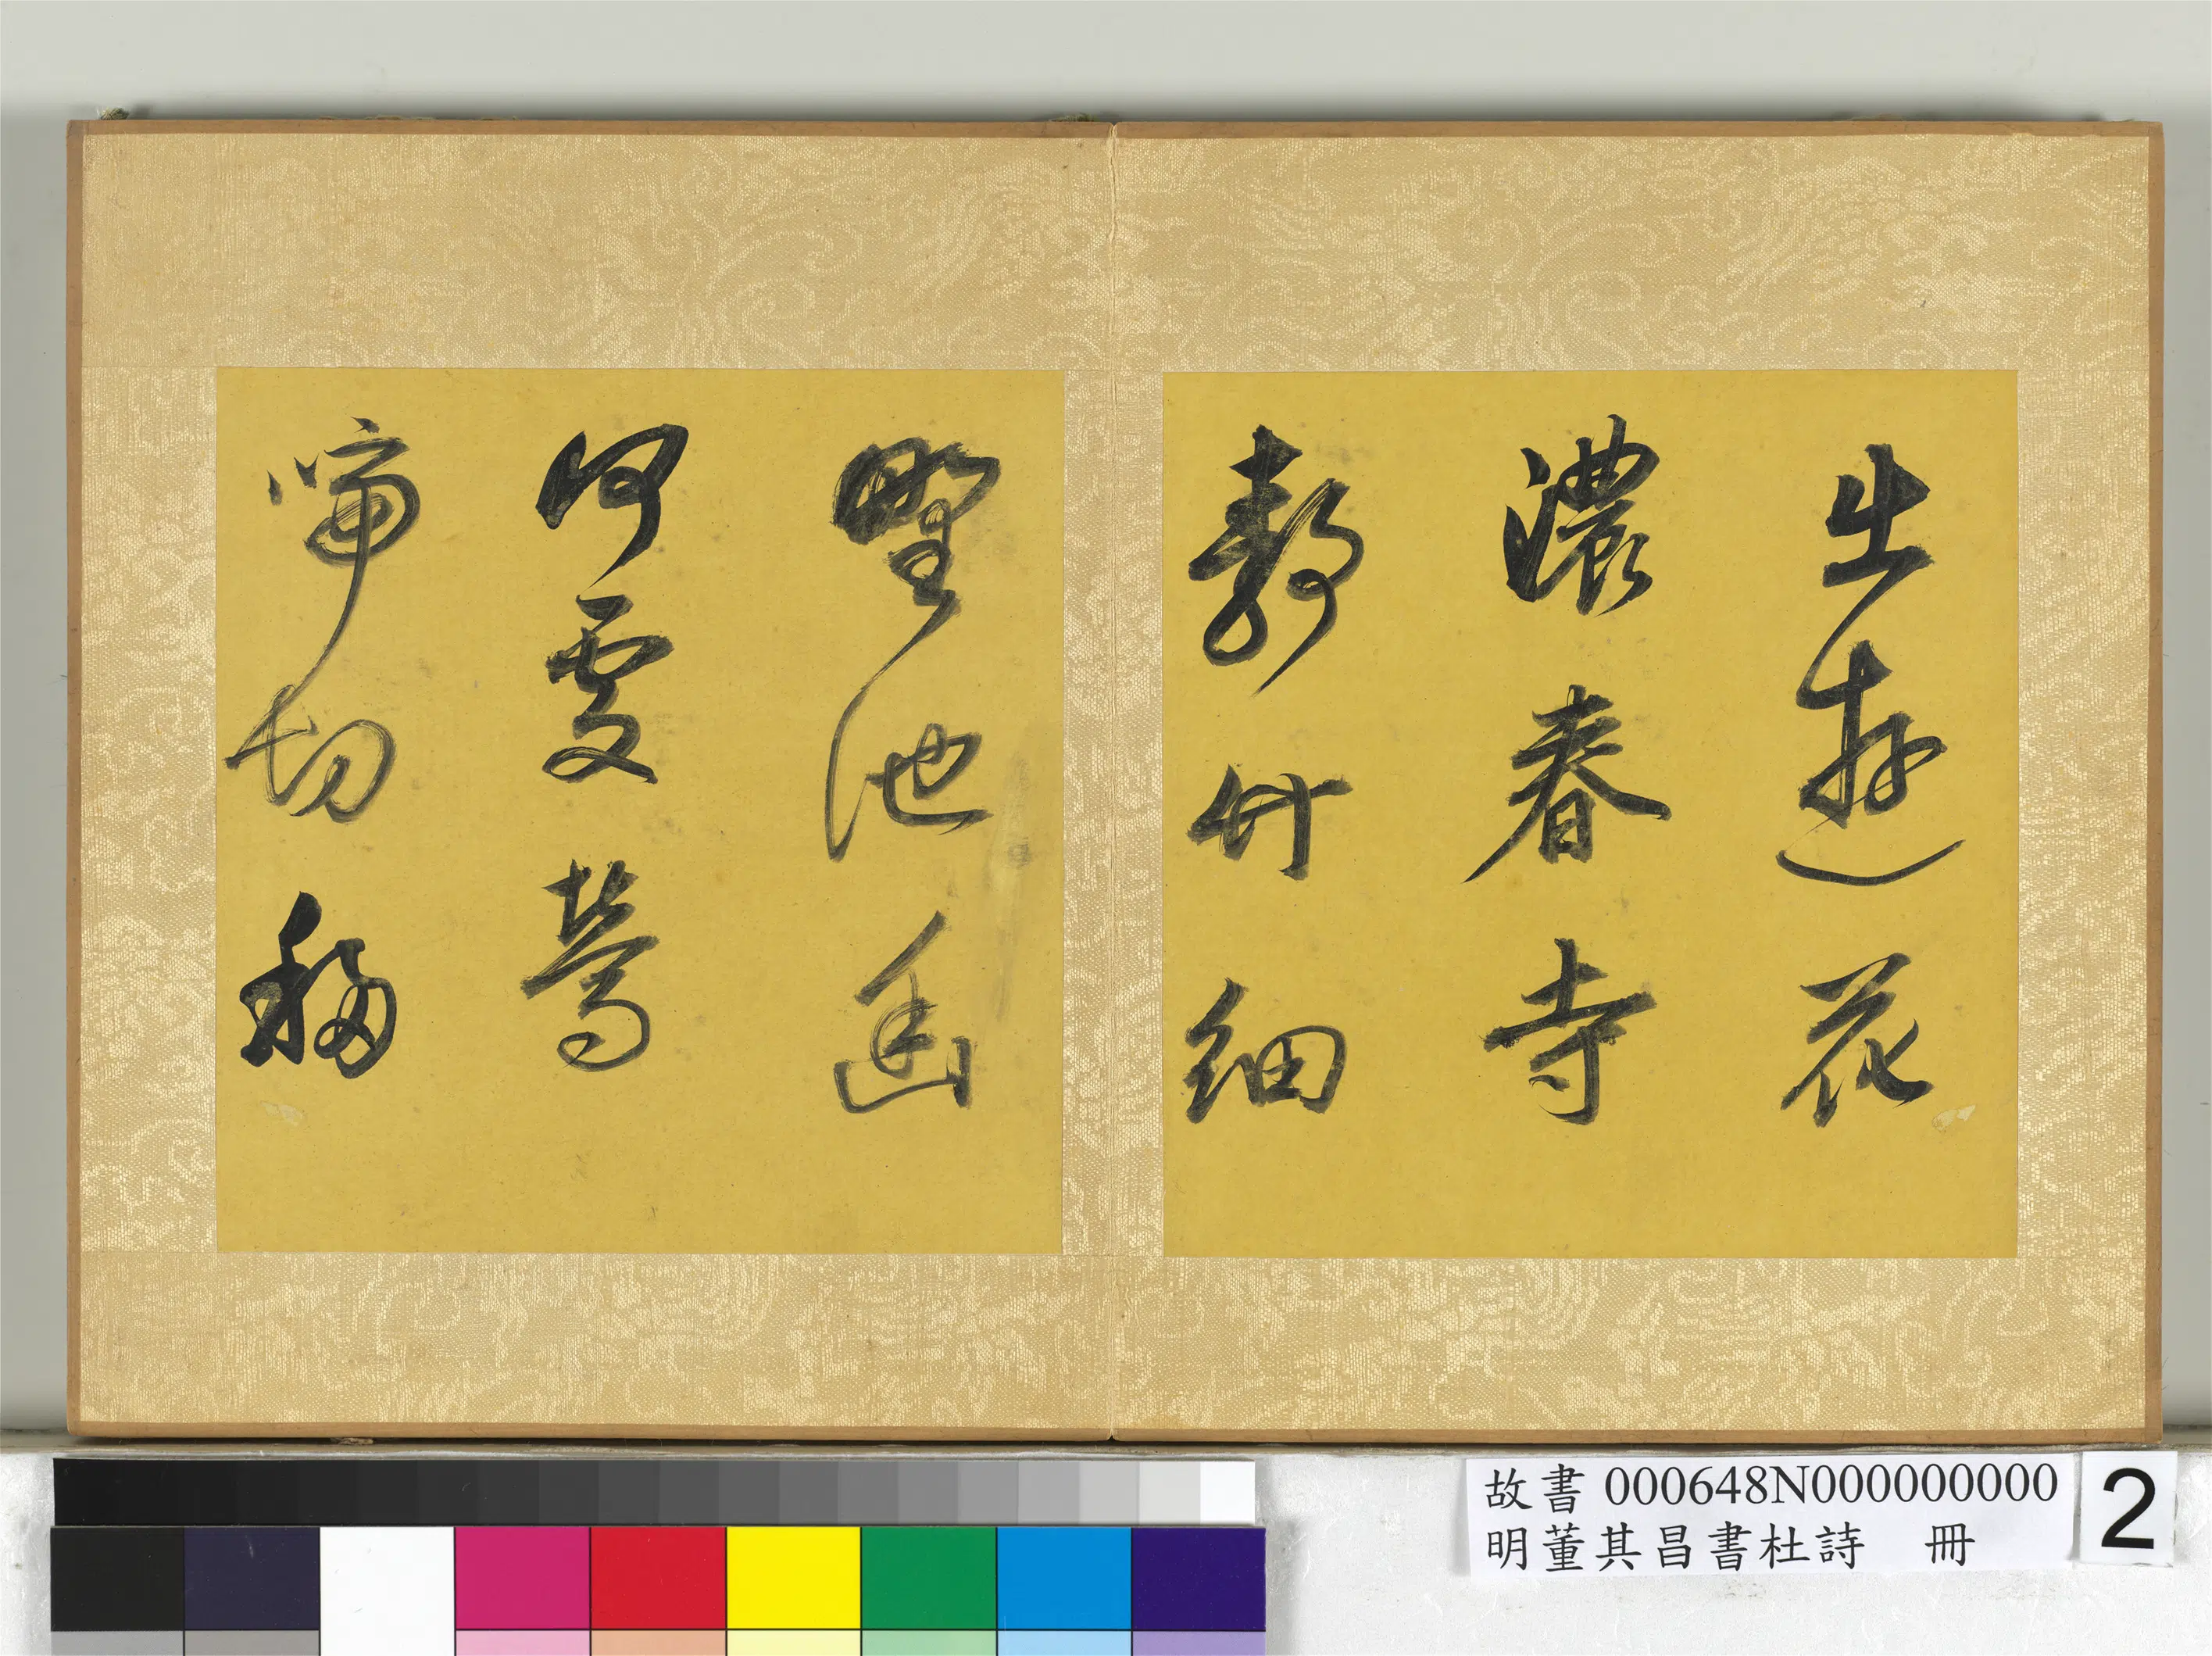 出遊花
濃春寺
靜竹細
野池幽
何處鶯
啼切移
故書 000648N000000000
明董其昌書杜詩 冊
2